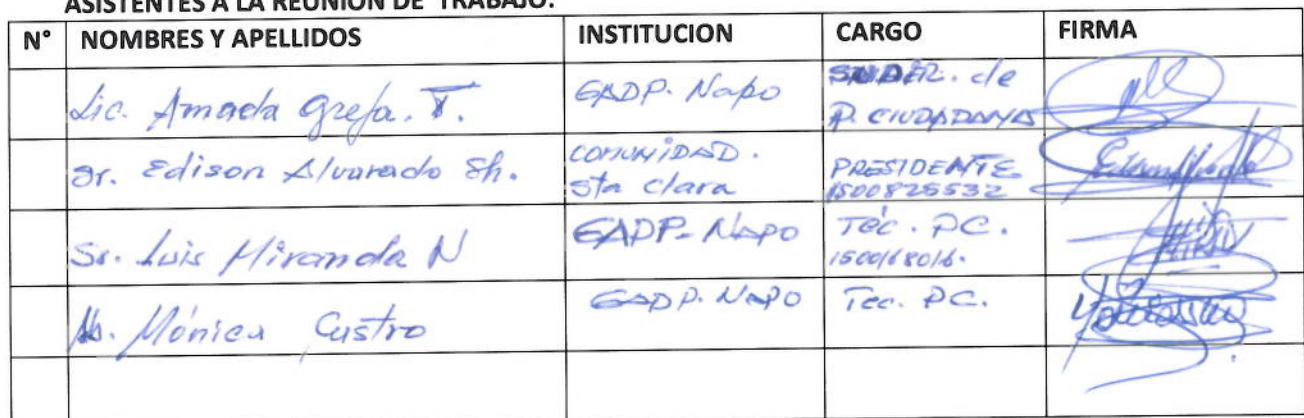 ASISTENTES A LA REUNION DE TRABAJO.
N° NOMBRES Y APELLIDOS INSTITUCION CARGO FIRMA
Lic. Amada Grefa. T. GADP. Napo de P. CIUDADANA
Sr. Edison Alvarado Sh. COMUNIDAD. Sta Clara PRESIDENTE 1500825532
Sr. Luis Miranda N GADP- Napo Tec. PC.
Mónica Castro GADP. Napo Tec. PC.